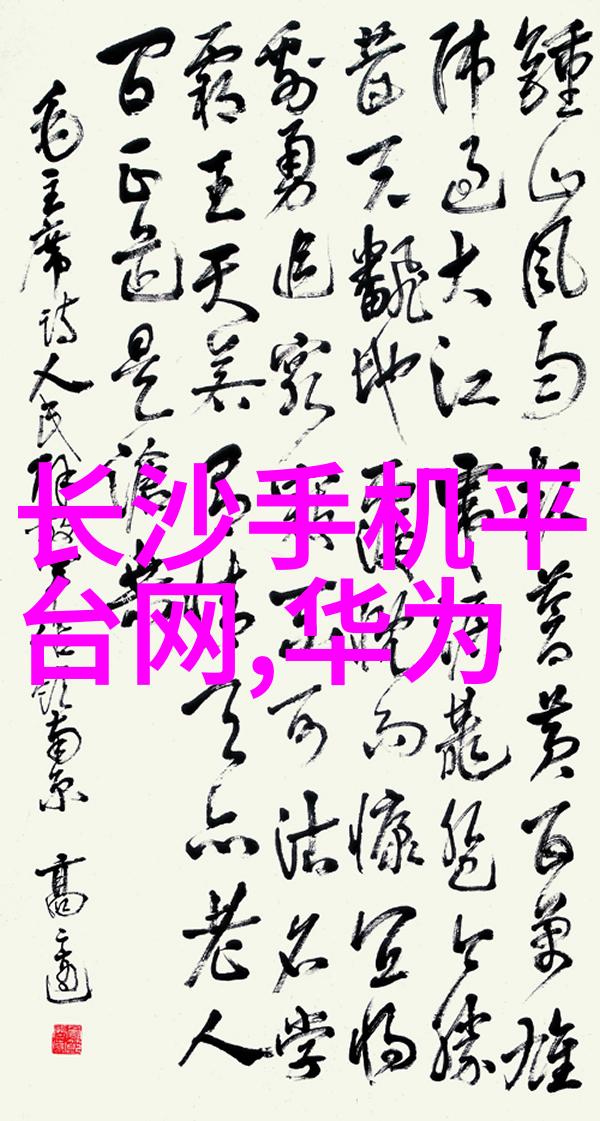 鍾山风雨起苍黄百万雄
师过大江虎踞龍盘今胜
昔天飜地覆慨而慷宜将
剩勇追穷寇不可沽名学
霸王天若有情天亦老人
间正道是滄桑
毛主席诗人民解放军占领南京 高
长沙手机平
台网,华为